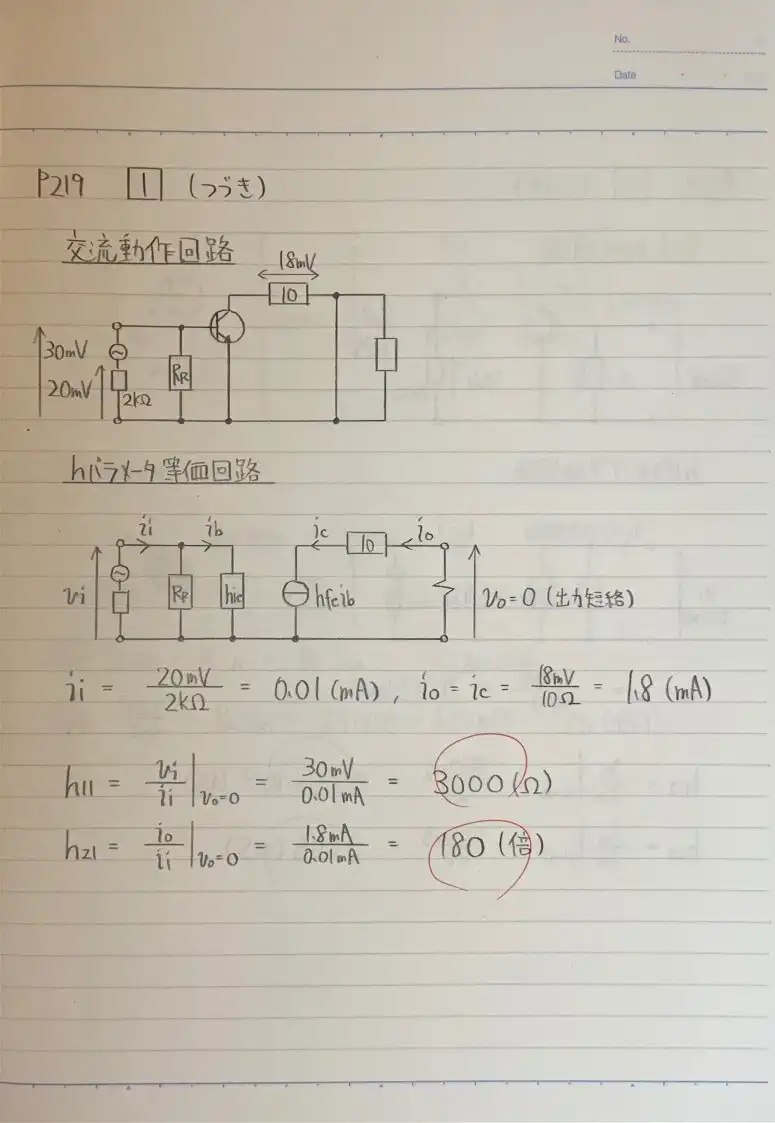 No.
Date
P219 1 (つづき)
交流動作回路
18mV
10
30mV
20mV
2kΩ
hパラメータ等価回路
ii ib ic 10 io
vi
hfeib
vo=0 (出力短絡)
ii = 20mV/2kΩ = 0.01 (mA), io = ic = 18mV/10Ω = 1.8 (mA)
h11 = vi/ii |vo=0 = 30mV/0.01mA = 3000 (Ω)
h21 = io/ii |vo=0 = 1.8mA/0.01mA = 180 (倍)